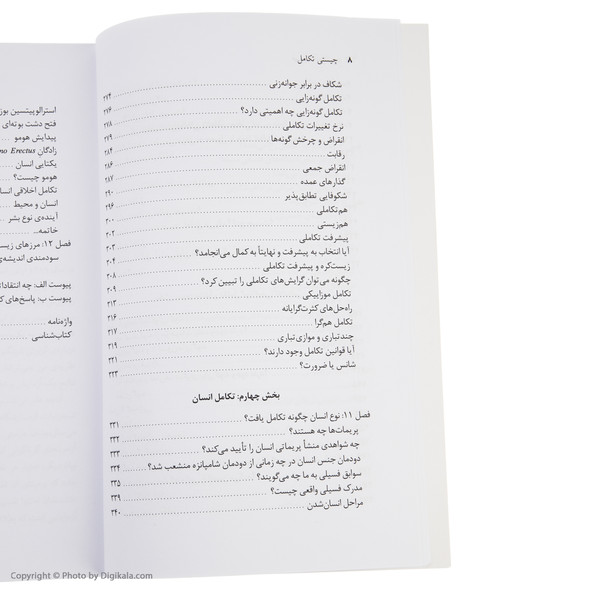 ۸ چیستی تکامل
شکاف در برابر جوانه‌زنی ۲۷۴
تکامل گونه‌زایی ۲۷۶
تکامل گونه‌زایی چه اهمیتی دارد؟ ۲۷۸
نرخ تغییرات تکاملی ۲۷۹
انقراض و چرخش گونه‌ها ۲۸۴
رقابت ۲۸۶
انقراض جمعی ۲۸۷
گذارهای عمده ۲۹۰
شکوفایی تطابق‌پذیر ۲۹۶
هم‌تکاملی ۳۰۰
هم‌زیستی ۳۰۲
پیشرفت تکاملی ۳۰۳
آیا انتخاب به پیشرفت و نهایتاً به کمال می‌انجامد؟ ۳۰۴
زیست‌کره و پیشرفت تکاملی ۳۰۸
چگونه می‌توان گرایش‌های تکاملی را تبیین کرد؟ ۳۰۹
تکامل موزاییکی ۳۱۳
راه‌حل‌های کثرت‌گرایانه ۳۱۶
تکامل هم‌گرا ۳۱۷
چندتباری و موازی‌تباری ۳۱۹
آیا قوانین تکامل وجود دارند؟ ۳۲۱
شانس یا ضرورت؟ ۳۲۳
بخش چهارم: تکامل انسان
فصل ۱۱: نوع انسان چگونه تکامل یافت؟ ۳۳۱
پریمات‌ها چه هستند؟ ۳۳۲
چه شواهدی منشأ پریماتی انسان را تأیید می‌کند؟ ۳۳۳
دودمان جنس انسان در چه زمانی از دودمان شامپانزه منشعب شد؟ ۳۳۴
سوابق فسیلی به ما چه می‌گویند؟ ۳۳۵
مدرک فسیلی واقعی چیست؟ ۳۳۹
مراحل انسان‌شدن ۳۴۰
استرالوپیتسین
فتح دشت بوته‌ای
پیدایش هومو
زادگان Erectus
یکتایی انسان
هومو چیست؟
تکامل اخلاقی
انسان و محیط
آینده‌ی نوع بشر
خاتمه
فصل ۱۲: مرزهای
سودمندی
پیوست الف: چه
پیوست ب: پاسخ‌های
واژه‌نامه
کتاب‌شناسی
Copyright © Photo by Digikala.com